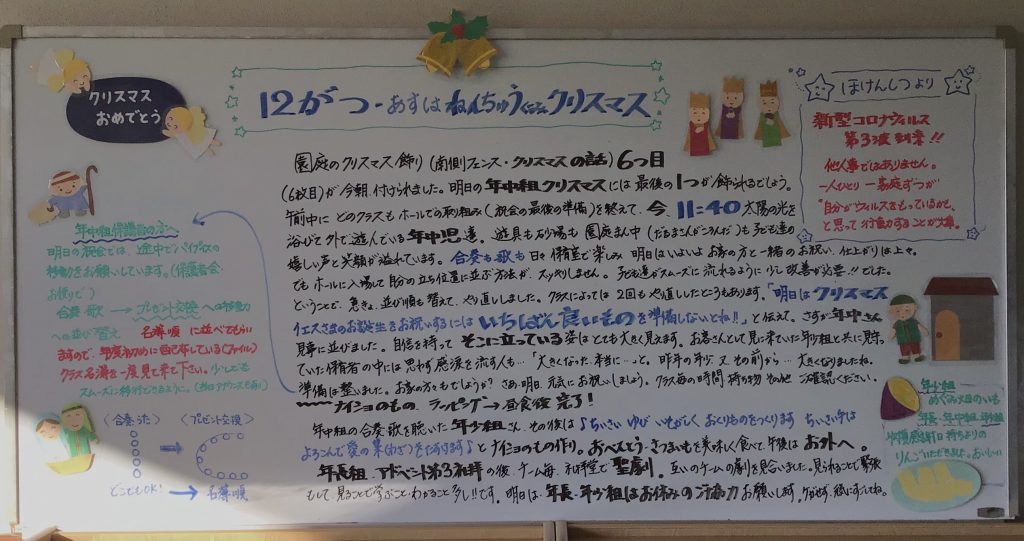 クリスマス
おめでとう
12がつ・あすは ねんちゅうぐみ クリスマス
ほけんしつより
新型コロナウィルス
第3波 到来!!
他人事ではありません。
一人ひとり 一家庭ずつが
"自分がウィルスをもっているかも、
と思って行動することが大事
園庭のクリスマス飾り(南側フェンス・クリスマスの話)6つ目
(6枚目)が今朝、付けられました。明日の年中組クリスマスには最後の1つが飾られるでしょう。
午前中に どのクラスも ホールでの取り組み(祝会の最後の準備)を終えて、今、11:40 太陽の光を
浴びて外で遊んでいる年中児達。遊具も砂場も園庭まん中(だるまさんがころんだ)も子ども達の
嬉しい声と笑顔が溢れています。合奏も歌も日々保育室で楽しみ 明日はいよいよお家の方と一緒のお祝い、仕上がりは上々。
でもホールに入場して自分の立ち位置に並ぶ方法が、スッキリしません。子ども達がスムーズに流れるように少し改善が必要!!でした。
ということで、急きょ、並び順も替えて、やり直ししました。クラスによっては2回もやり直ししたところもあります。「明日はクリスマス
イエスさまのお誕生をお祝いするには いちばん良いものを準備しないとね!!」と伝えて、さすが年中さん
見事に並びました。自信を持って そこに立っている姿はとても大きく見えます。お客さんとして見に来ていた年少組と共に見守っ
ていた保育者の中には思わず感涙を流す人も…「大きくなった、本当に…」と。昨年の年少、又その前から…大きくなりましたね。
準備は整いました。お家の方々もどうでしょうか? さあ、明日、元気にお祝いしましょう。クラス毎の時間 持ち物 その他 ご確認ください。
ナイショのもの、ラッピング→昼食後 完了!
年中組の合奏を聴いた年少組さん、その後は♪ちいさい ゆび いそがしく おくりものをつくります ちいさい手は
よろこんで愛の業(わざ)をたすけます♪とナイショのもの作り。おべんとう・さつまいもを美味しく食べて、午後はお外へ。
年長組、アドベント第3礼拝の後、チーム毎、礼拝堂で聖劇。互いのチームの劇を見合いました。見られることで緊張
もして 見ることで学ぶこと・わかること多し!!です。明日は、年長・年少組はお休みのご協力お願いします。
年中組保護者の方へ
明日の祝会では、途中でパイプイスの
移動をお願いしています。(保護者会・
お便りで)
合奏・歌 → プレゼント交換 への待機
への並び替え 名簿順に並べてもらい
ますので、年度初めに配布している(ファイル)
クラス名簿を一度見て来て下さい。少しでも
スムーズに移動できるように。(当日アナウンスも有)
〈合奏・うた〉
〈プレゼント交換〉
どこでもOK!
→ 名簿順
年少組
めぐみ畑のいも
年長・年中組・年少組
収穫感謝日 持ちよりの
りんごいただきました。おいしい